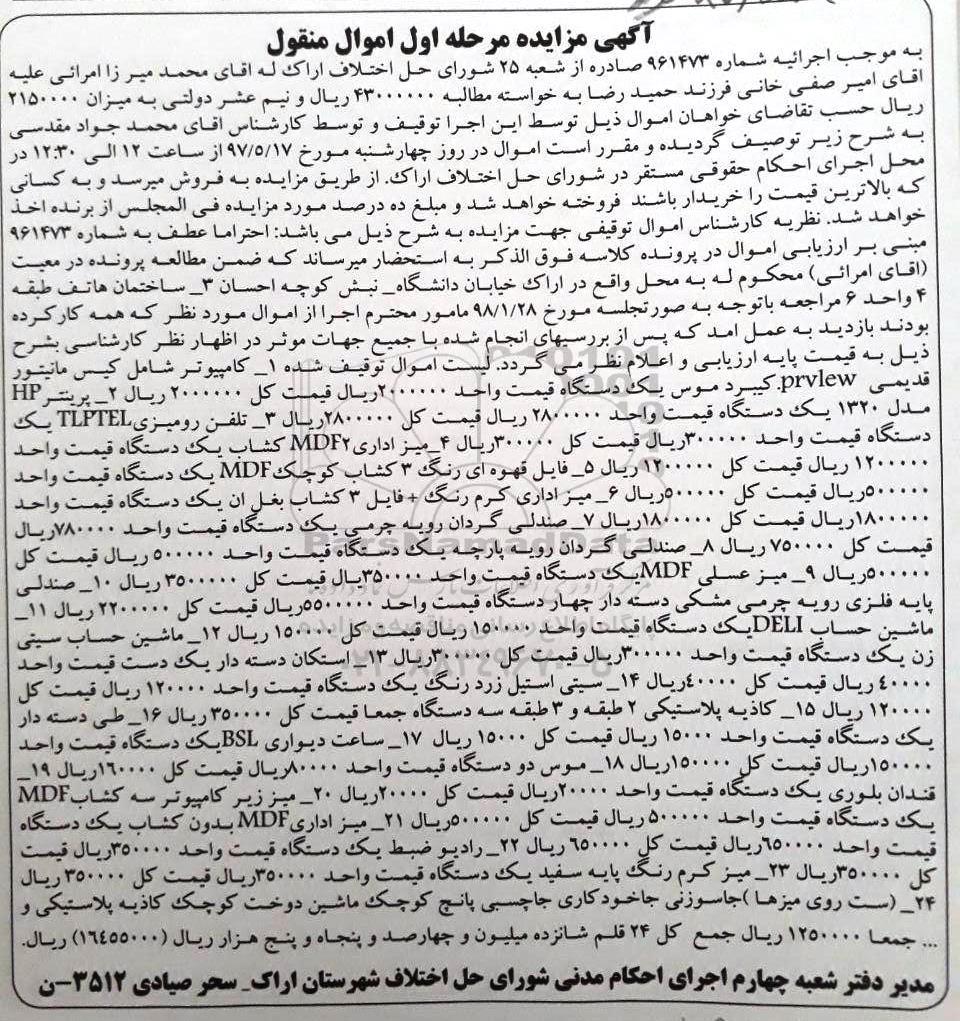 آگهی مزایده مرحله اول اموال منقول
به موجب اجرائیه شماره ۹۶۱۴۷۳ صادره از شعبه ۲۵ شورای حل اختلاف اراک له اقای محمد میر زا امرائی علیه
اقای امیر صفی خانی فرزند حمید رضا به خواسته مطالبه ۴۳۰۰۰۰۰۰ ریال و نیم عشر دولتی به میزان ۲۱۵۰۰۰۰
ریال حسب تقاضای خواهان اموال ذیل توسط این اجرا توقیف و توسط کارشناس اقای محمد جواد مقدسی
به شرح زیر توصیف گردیده و مقرر است اموال در روز چهارشنبه مورخ ۹۷/۵/۱۷ از ساعت ۱۲ الی ۱۲:۳۰ در
محل اجرای احکام حقوقی مستقر در شورای حل اختلاف اراک. از طریق مزایده به فروش میرسد و به کسانی
که بالاترین قیمت را خریدار باشند فروخته خواهد شد و مبلغ ده درصد مورد مزایده فی المجلس از برنده اخذ
خواهد شد. نظریه کارشناس اموال توقیفی جهت مزایده به شرح ذیل می باشد: احتراما عطف به شماره ۹۶۱۴۷۳
مبنی بر ارزیابی اموال در پرونده کلاسه فوق الذکر به استحضار میرساند که ضمن مطالعه پرونده در معیت
(اقای امرائی) محکوم له به محل واقع در اراک خیابان دانشگاه_ نبش کوچه احسان ۳_ ساختمان هاتف طبقه
۴ واحد ۶ مراجعه باتوجه به صورتجلسه مورخ ۹۸/۱/۲۸ مامور محترم اجرا از اموال مورد نظر که همه کارکرده
بودند بازدید به عمل امد که پس از بررسیهای انجام شده با جمیع جهات موثر در اظهار نظر کارشناسی بشرح
ذیل به قیمت پایه ارزیابی و اعلام نظر می گردد. لیست اموال توقیف شده ۱_ کامپیوتر شامل کیس مانیتور
قدیمی prvlew.کیبرد موس یک دستگاه قیمت واحد ۲۰۰۰۰۰۰ریال قیمت کل ۲۰۰۰۰۰۰ ریال ۲_ پرینتر HP
مدل ۱۳۲۰ یک دستگاه قیمت واحد ۲۸۰۰۰۰۰ ریال قیمت کل ۲۸۰۰۰۰۰ریال ۳_ تلفن رومیزی TLPTEL یک
دستگاه قیمت واحد ۳۰۰۰۰۰ریال قیمت کل ۳۰۰۰۰۰ریال ۴_میز اداری MDF۲ کشاب یک دستگاه قیمت واحد
۱۲۰۰۰۰۰ ریال قیمت کل ۱۲۰۰۰۰۰ریال ۵_فایل قهوه ای رنگ ۳ کشاب کوچک MDF یک دستگاه قیمت واحد
۵۰۰۰۰۰ریال قیمت کل ۵۰۰۰۰۰ریال ۶_ میز اداری کرم رنگ + فایل ۳ کشاب بغل ان یک دستگاه قیمت واحد
۱۸۰۰۰۰۰ریال قیمت کل ۱۸۰۰۰۰۰ریال ۷_ صندلی گردان رویه چرمی یک دستگاه قیمت واحد ۷۸۰۰۰۰ریال
قیمت کل ۷۵۰۰۰۰ ریال ۸_ صندلی گردان رویه پارچه یک دستگاه قیمت واحد ۵۰۰۰۰۰ ریال قیمت کل
۵۰۰۰۰۰ریال ۹_ میز عسلی MDFیک دستگاه قیمت واحد ۳۵۰۰۰۰یال قیمت کل ۳۵۰۰۰۰۰ ریال ۱۰_ صندلی
پایه فلزی رویه چرمی مشکی دسته دار چهار دستگاه قیمت واحد ۵۵۰۰۰۰۰ریال قیمت کل ۲۲۰۰۰۰۰ ریال ۱۱_
ماشین حساب DELIیک دستگاه قیمت واحد ۱۵۰۰۰۰ ریال قیمت کل ۱۵۰۰۰۰ ریال ۱۲_ ماشین حساب سیتی
زن یک دستگاه قیمت واحد ۳۰۰۰۰۰ریال قیمت کل ۳۰۰۰۰۰ریال ۱۳_ استکان دسته دار یک دست قیمت واحد
۴۰۰۰۰ ریال قیمت کل ۴۰۰۰۰ریال ۱۴_ سیتی استیل زرد رنگ یک دستگاه قیمت واحد ۱۲۰۰۰۰ ریال قیمت کل
۱۲۰۰۰۰ ریال ۱۵_ کاذیه پلاستیکی ۲ طبقه و ۳ طبقه سه دستگاه جمعا قیمت کل ۳۵۰۰۰۰ ریال ۱۶_ طی دسته دار
یک دستگاه قیمت واحد ۱۵۰۰۰ ریال قیمت کل ۱۵۰۰۰ ریال ۱۷_ ساعت دیواری BSLیک دستگاه قیمت واحد
۱۵۰۰۰۰ریال قیمت کل ۱۵۰۰۰۰ریال ۱۸_ موس دو دستگاه قیمت واحد ۸۰۰۰۰ریال قیمت کل ۱۶۰۰۰۰ریال ۱۹_
قندان بلوری یک دستگاه قیمت واحد ۲۰۰۰۰ریال قیمت کل ۲۰۰۰۰ریال ۲۰_ میز زیر کامپیوتر سه کشاب MDF
یک دستگاه قیمت واحد ۵۰۰۰۰۰ ریال قیمت کل ۵۰۰۰۰۰ریال ۲۱_ میز اداری MDF بدون کشاب یک دستگاه
قیمت واحد ۶۵۰۰۰۰ریال قیمت کل ۶۵۰۰۰۰ ریال ۲۲_ رادیو ضبط یک دستگاه قیمت واحد ۳۵۰۰۰۰ریال قیمت
کل ۳۵۰۰۰۰ریال ۲۳_ میز کرم رنگ پایه سفید یک دستگاه قیمت واحد ۳۵۰۰۰۰ریال قیمت کل ۳۵۰۰۰۰ ریال
۲۴_ (ست روی میزها )جاسوزنی جاخودکاری جاچسبی پانچ کوچک ماشین دوخت کوچک کاذیه پلاستیکی و
... جمعا ۱۲۵۰۰۰۰ ریال جمع کل ۲۴ قلم شانزده میلیون و چهارصد و پنجاه و پنج هزار ریال (۱۶۴۵۵۰۰۰) ریال.
مدیر دفتر شعبه چهارم اجرای احکام مدنی شورای حل اختلاف شهرستان اراک_ سحر صیادی ۳۵۱۲-ن
ParsNamadData
پایگاه اطلاع رسانی مناقصه و مزایده
۰۲۱-۸۸۳۴۹۶۷۰-۵